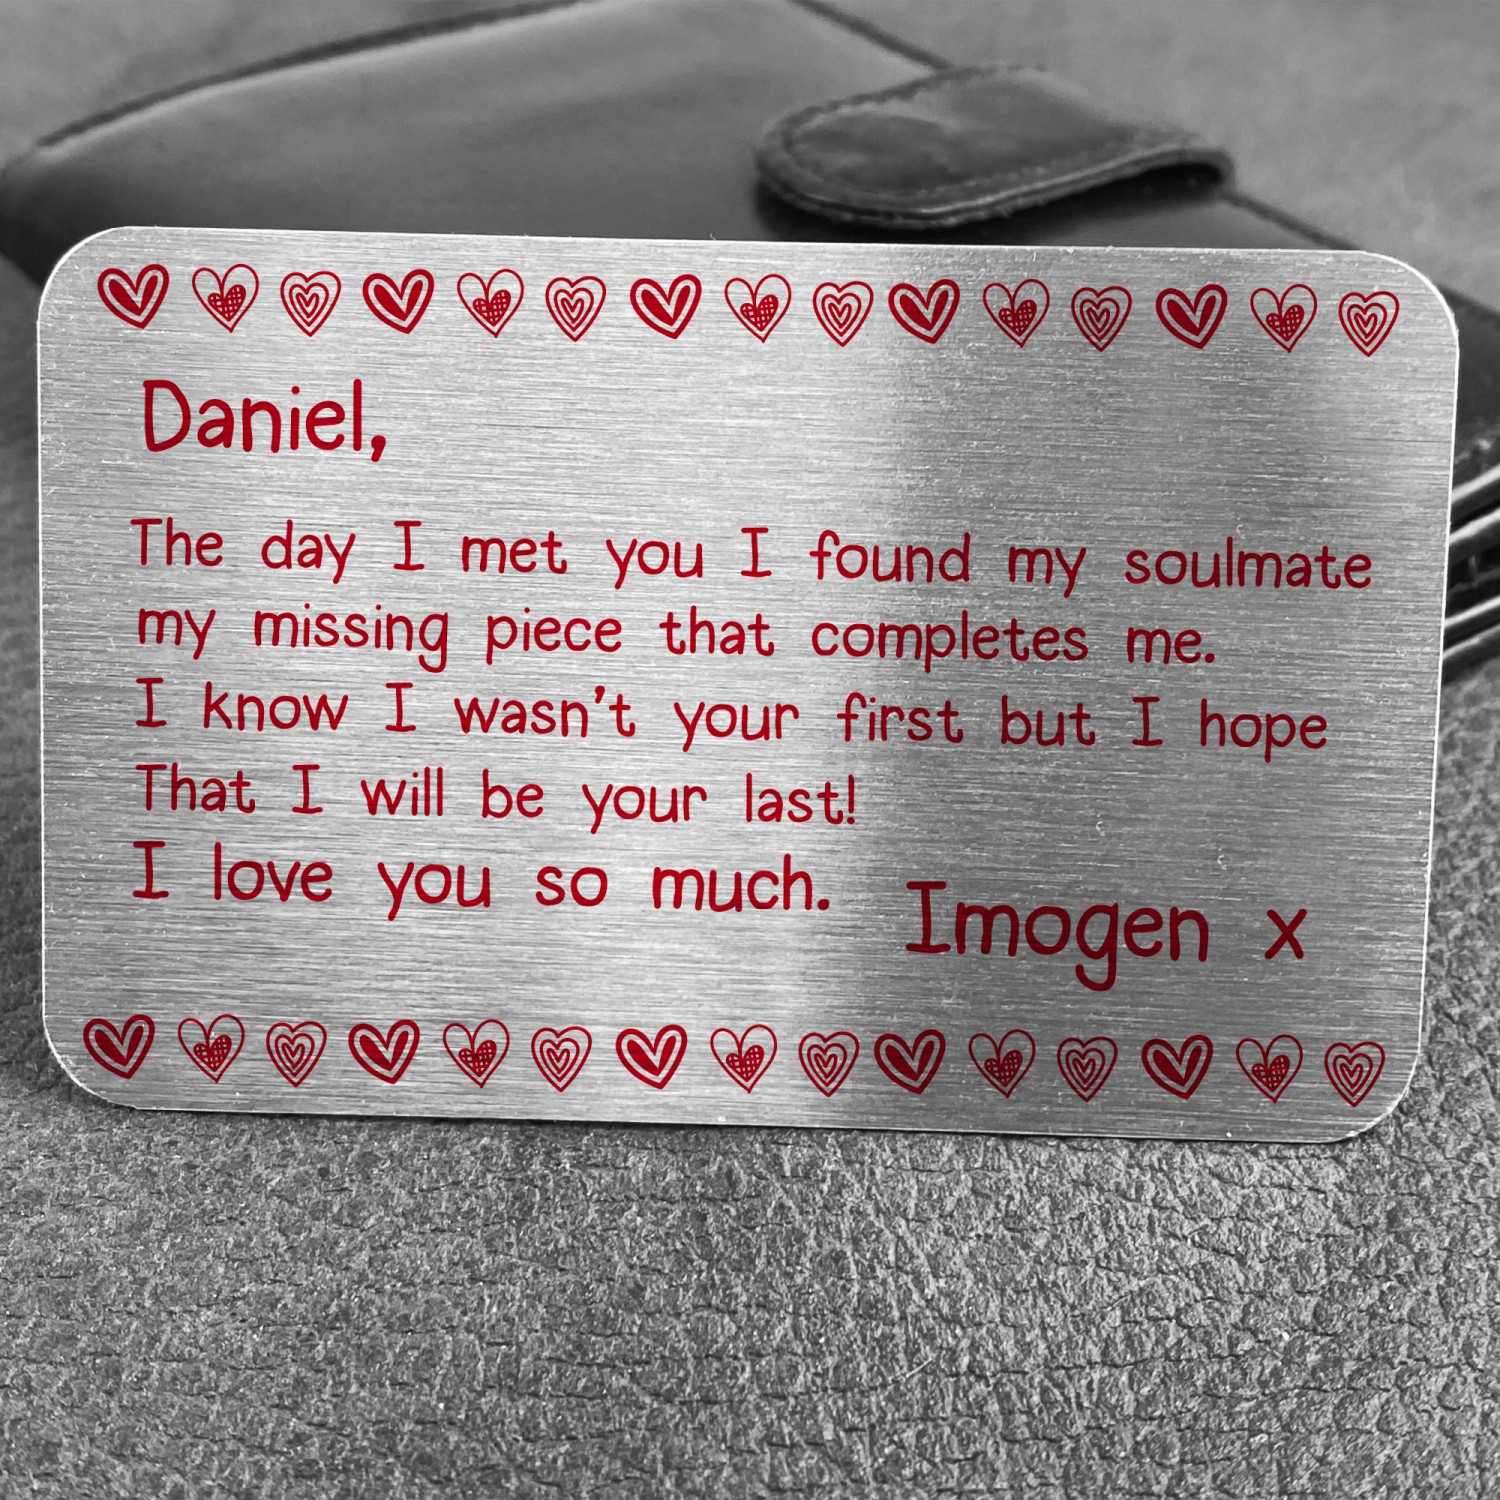 Daniel,
The day I met you I found my soulmate
my missing piece that completes me.
I know I wasn't your first but I hope
That I will be your last!
I love you so much.
Imogen x